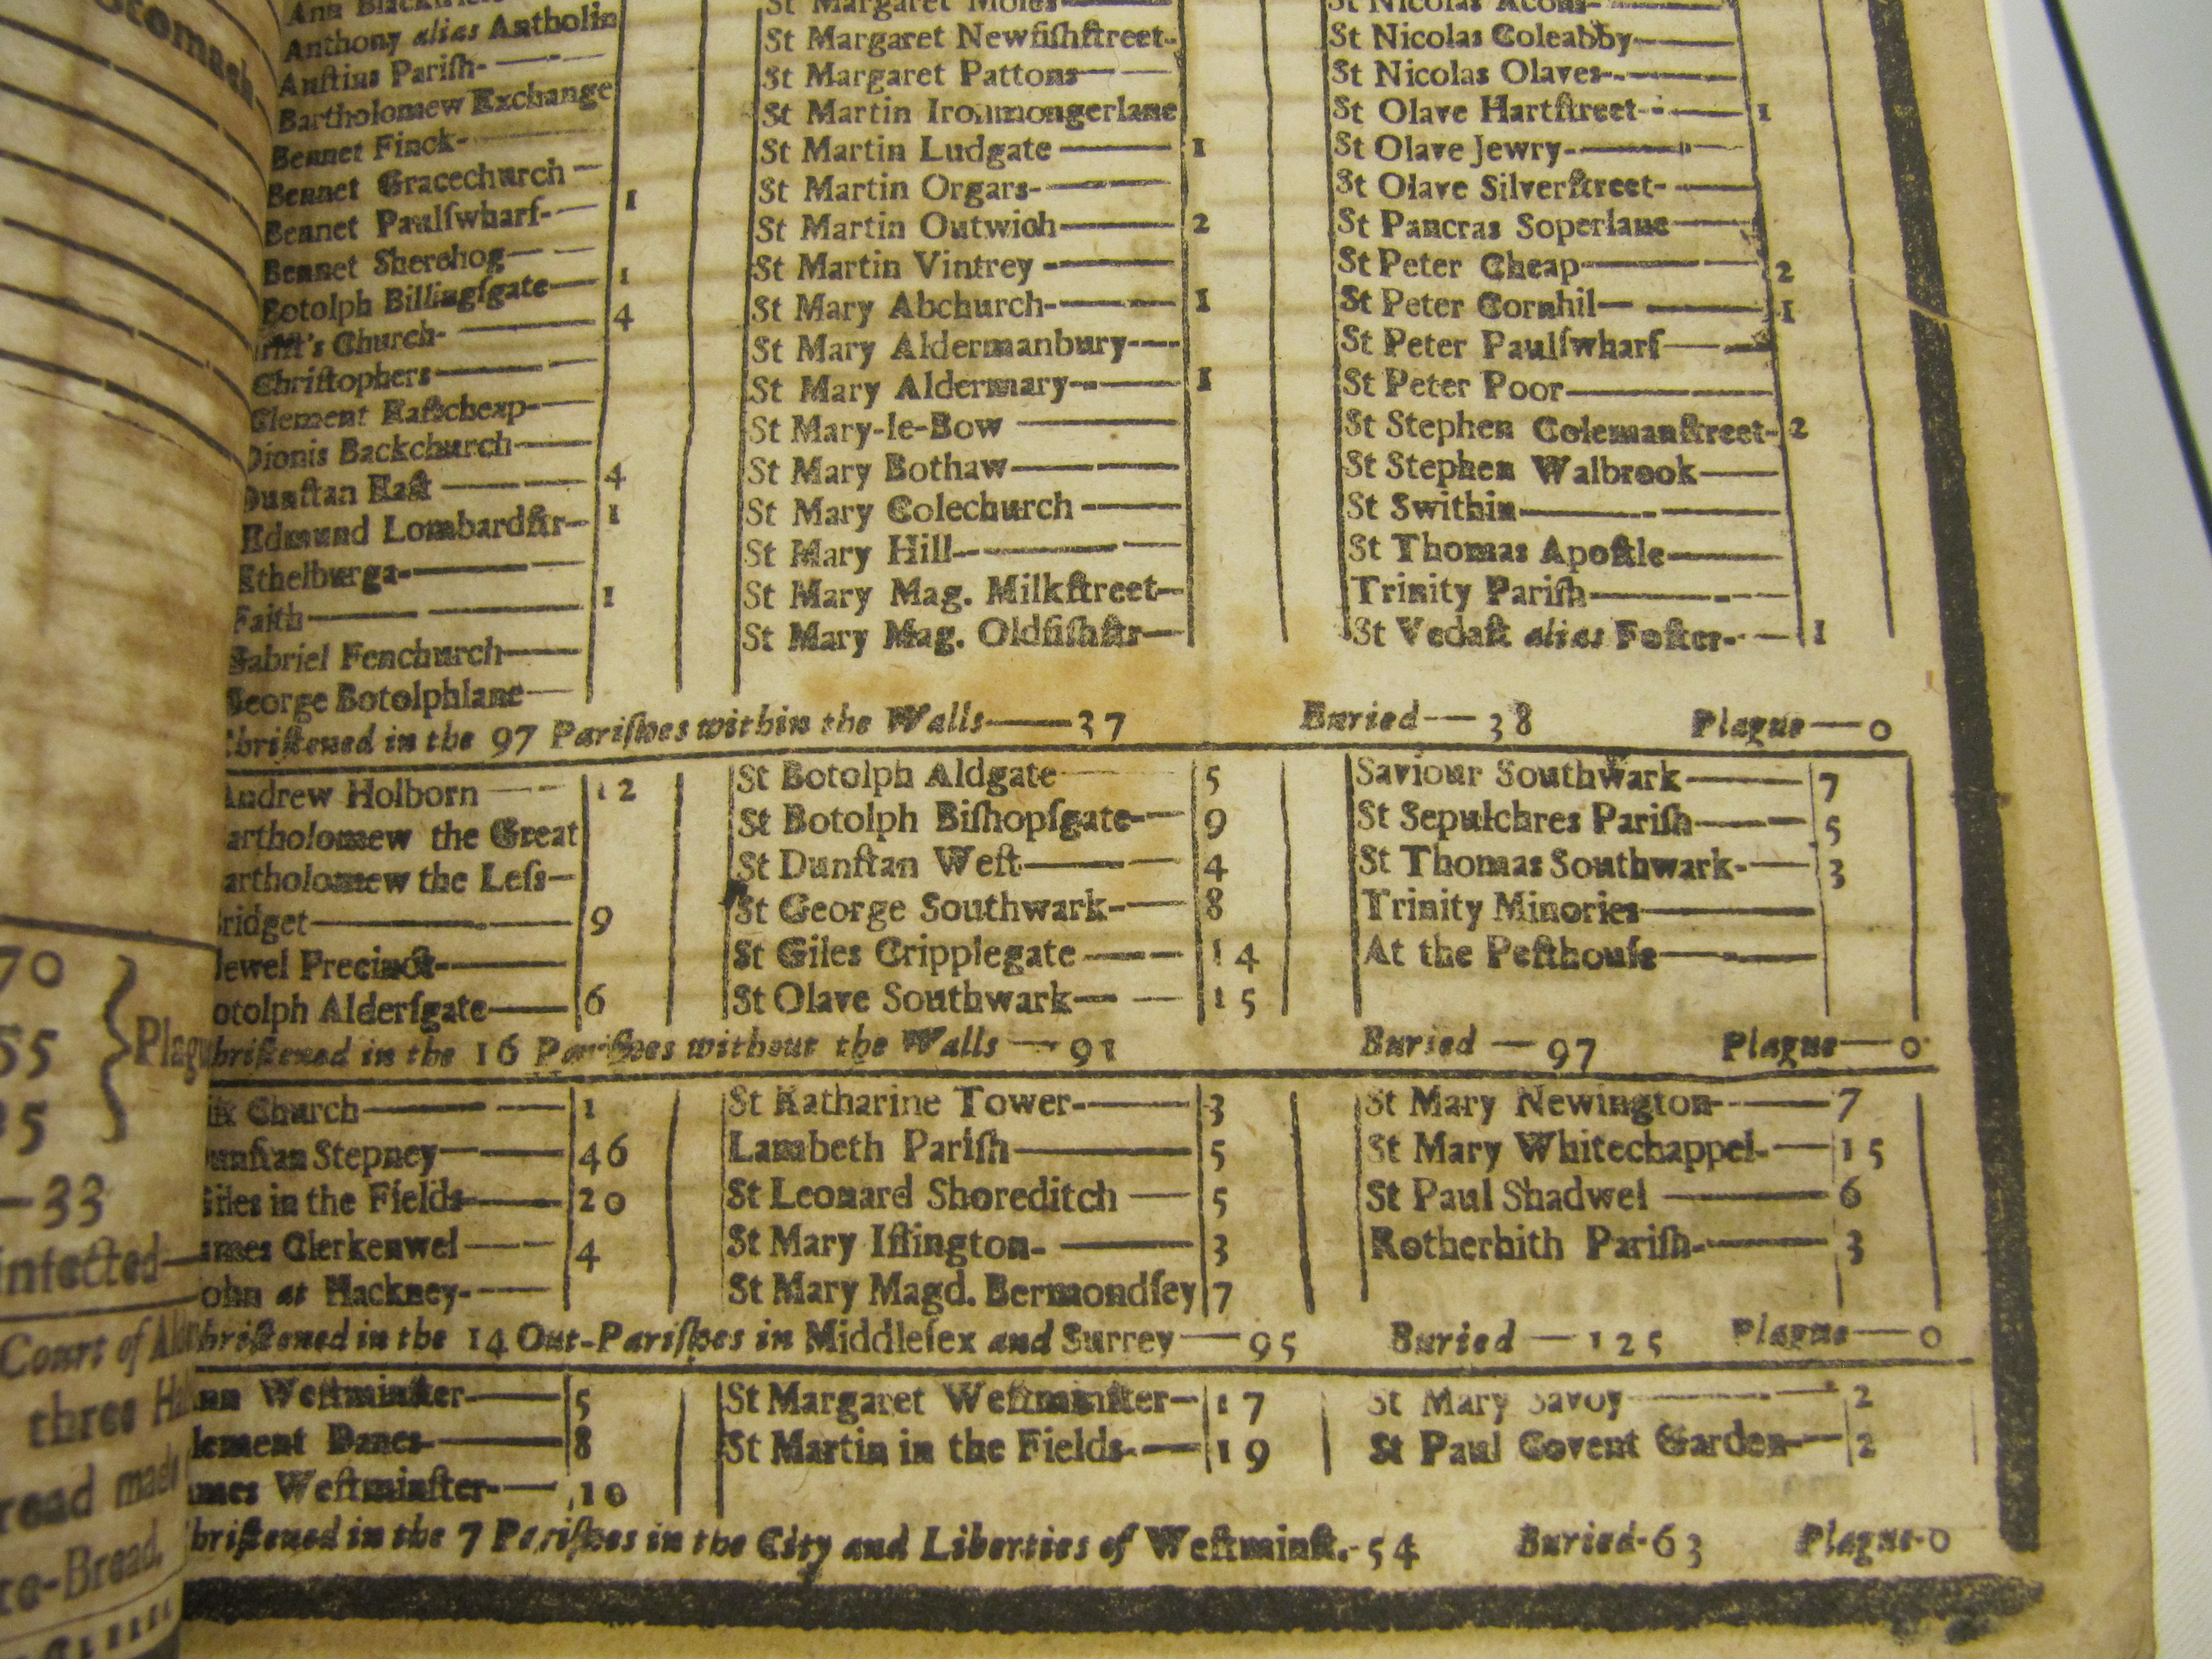 Stomach
70
55
Plag
5
—33
infected—
Court of Al
three Ha
read made
te-Bread,
Anthony alias Antholin
Auſtins Pariſh-
Bartholomew Exchange
Bennet Finck-
Bennet Gracechurch
Bennet Paulſwharf- 1
Bennet Sherehog
Botolph Billingſgate 1
riſt's Church- 4
Chriſtophers
Clement Eaſtcheap-
Dionis Backchurch
Dunſtan Eaſt 4
Edmund Lombardſtr- 1
Ethelburga-
Faith 1
Gabriel Fenchurch
George Botolphlane
St Margaret Moſes
St Margaret Newfiſhſtreet-
St Margaret Pattons
St Martin Ironmongerlane
St Martin Ludgate 1
St Martin Orgars-
St Martin Outwich 2
St Martin Vintrey
St Mary Abchurch- 1
St Mary Aldermanbury-
St Mary Aldermary- 1
St Mary-le-Bow
St Mary Bothaw
St Mary Colechurch
St Mary Hill
St Mary Mag. Milkſtreet-
St Mary Mag. Oldfiſhſtr-
St Nicolas Acons-
St Nicolas Coleabby
St Nicolas Olaves-
St Olave Hartſtreet- 1
St Olave Jewry-
St Olave Silverſtreet-
St Pancras Soperlane
St Peter Cheap 2
St Peter Cornhil 1
St Peter Paulſwharf
St Peter Poor
St Stephen Colemanſtreet- 2
St Stephen Walbrook
St Swithin
St Thomas Apoſtle
Trinity Pariſh
St Vedaſt alias Foſter- 1
hriſtened in the 97 Pariſhes within the Walls—37 Buried—38 Plague—0
Andrew Holborn 12
artholomew the Great
artholomew the Leſs-
ridget 9
dewel Precinct-
otolph Alderſgate 6
St Botolph Aldgate 5
St Botolph Biſhopſgate- 9
St Dunſtan Weſt 4
St George Southwark- 8
St Giles Cripplegate 14
St Olave Southwark 15
Saviour Southwark 7
St Sepulchres Pariſh 5
St Thomas Southwark- 3
Trinity Minories
At the Peſthouſe
hriſtened in the 16 Pariſhes without the Walls—91 Buried—97 Plague—0
Church 1
unſtan Stepney 46
Giles in the Fields 20
ames Clerkenwel 4
ohn at Hackney-
St Katharine Tower- 3
Lambeth Pariſh 5
St Leonard Shoreditch 5
St Mary Iſlington- 3
St Mary Magd. Bermondſey 7
St Mary Newington 7
St Mary Whitechappel- 15
St Paul Shadwel 6
Rotherhith Pariſh- 3
hriſtened in the 14 Out-Pariſhes in Middleſex and Surrey—95 Buried—125 Plague—0
nn Weſtminſter 5
lement Danes 8
ames Weſtminſter- 10
St Margaret Weſtminſter- 17
St Martin in the Fields- 19
St Mary Savoy 2
St Paul Covent Garden 2
hriſtened in the 7 Pariſhes in the City and Liberties of Weſtminſt.-54 Buried-63 Plague-0